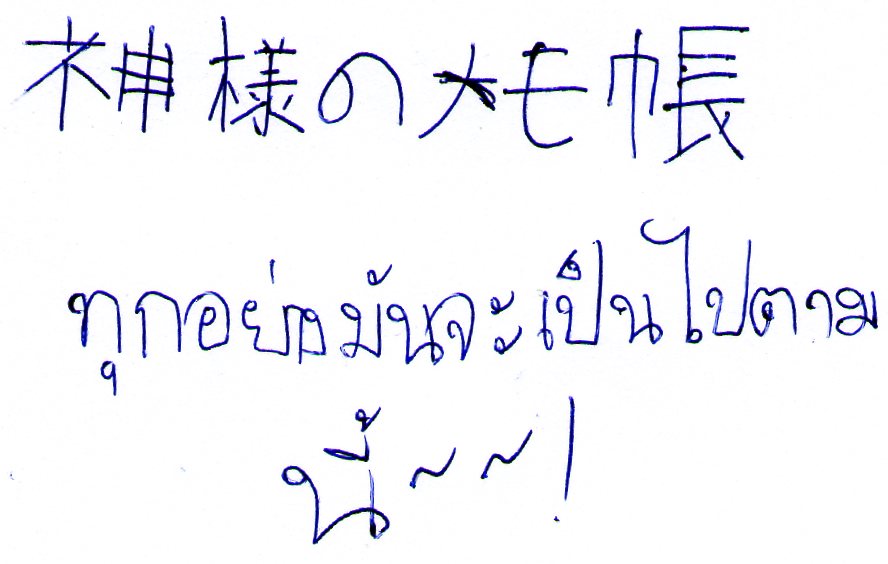 神様のメモ帳
ทุกอย่างมันจะเป็นไปตาม
นี้~~!